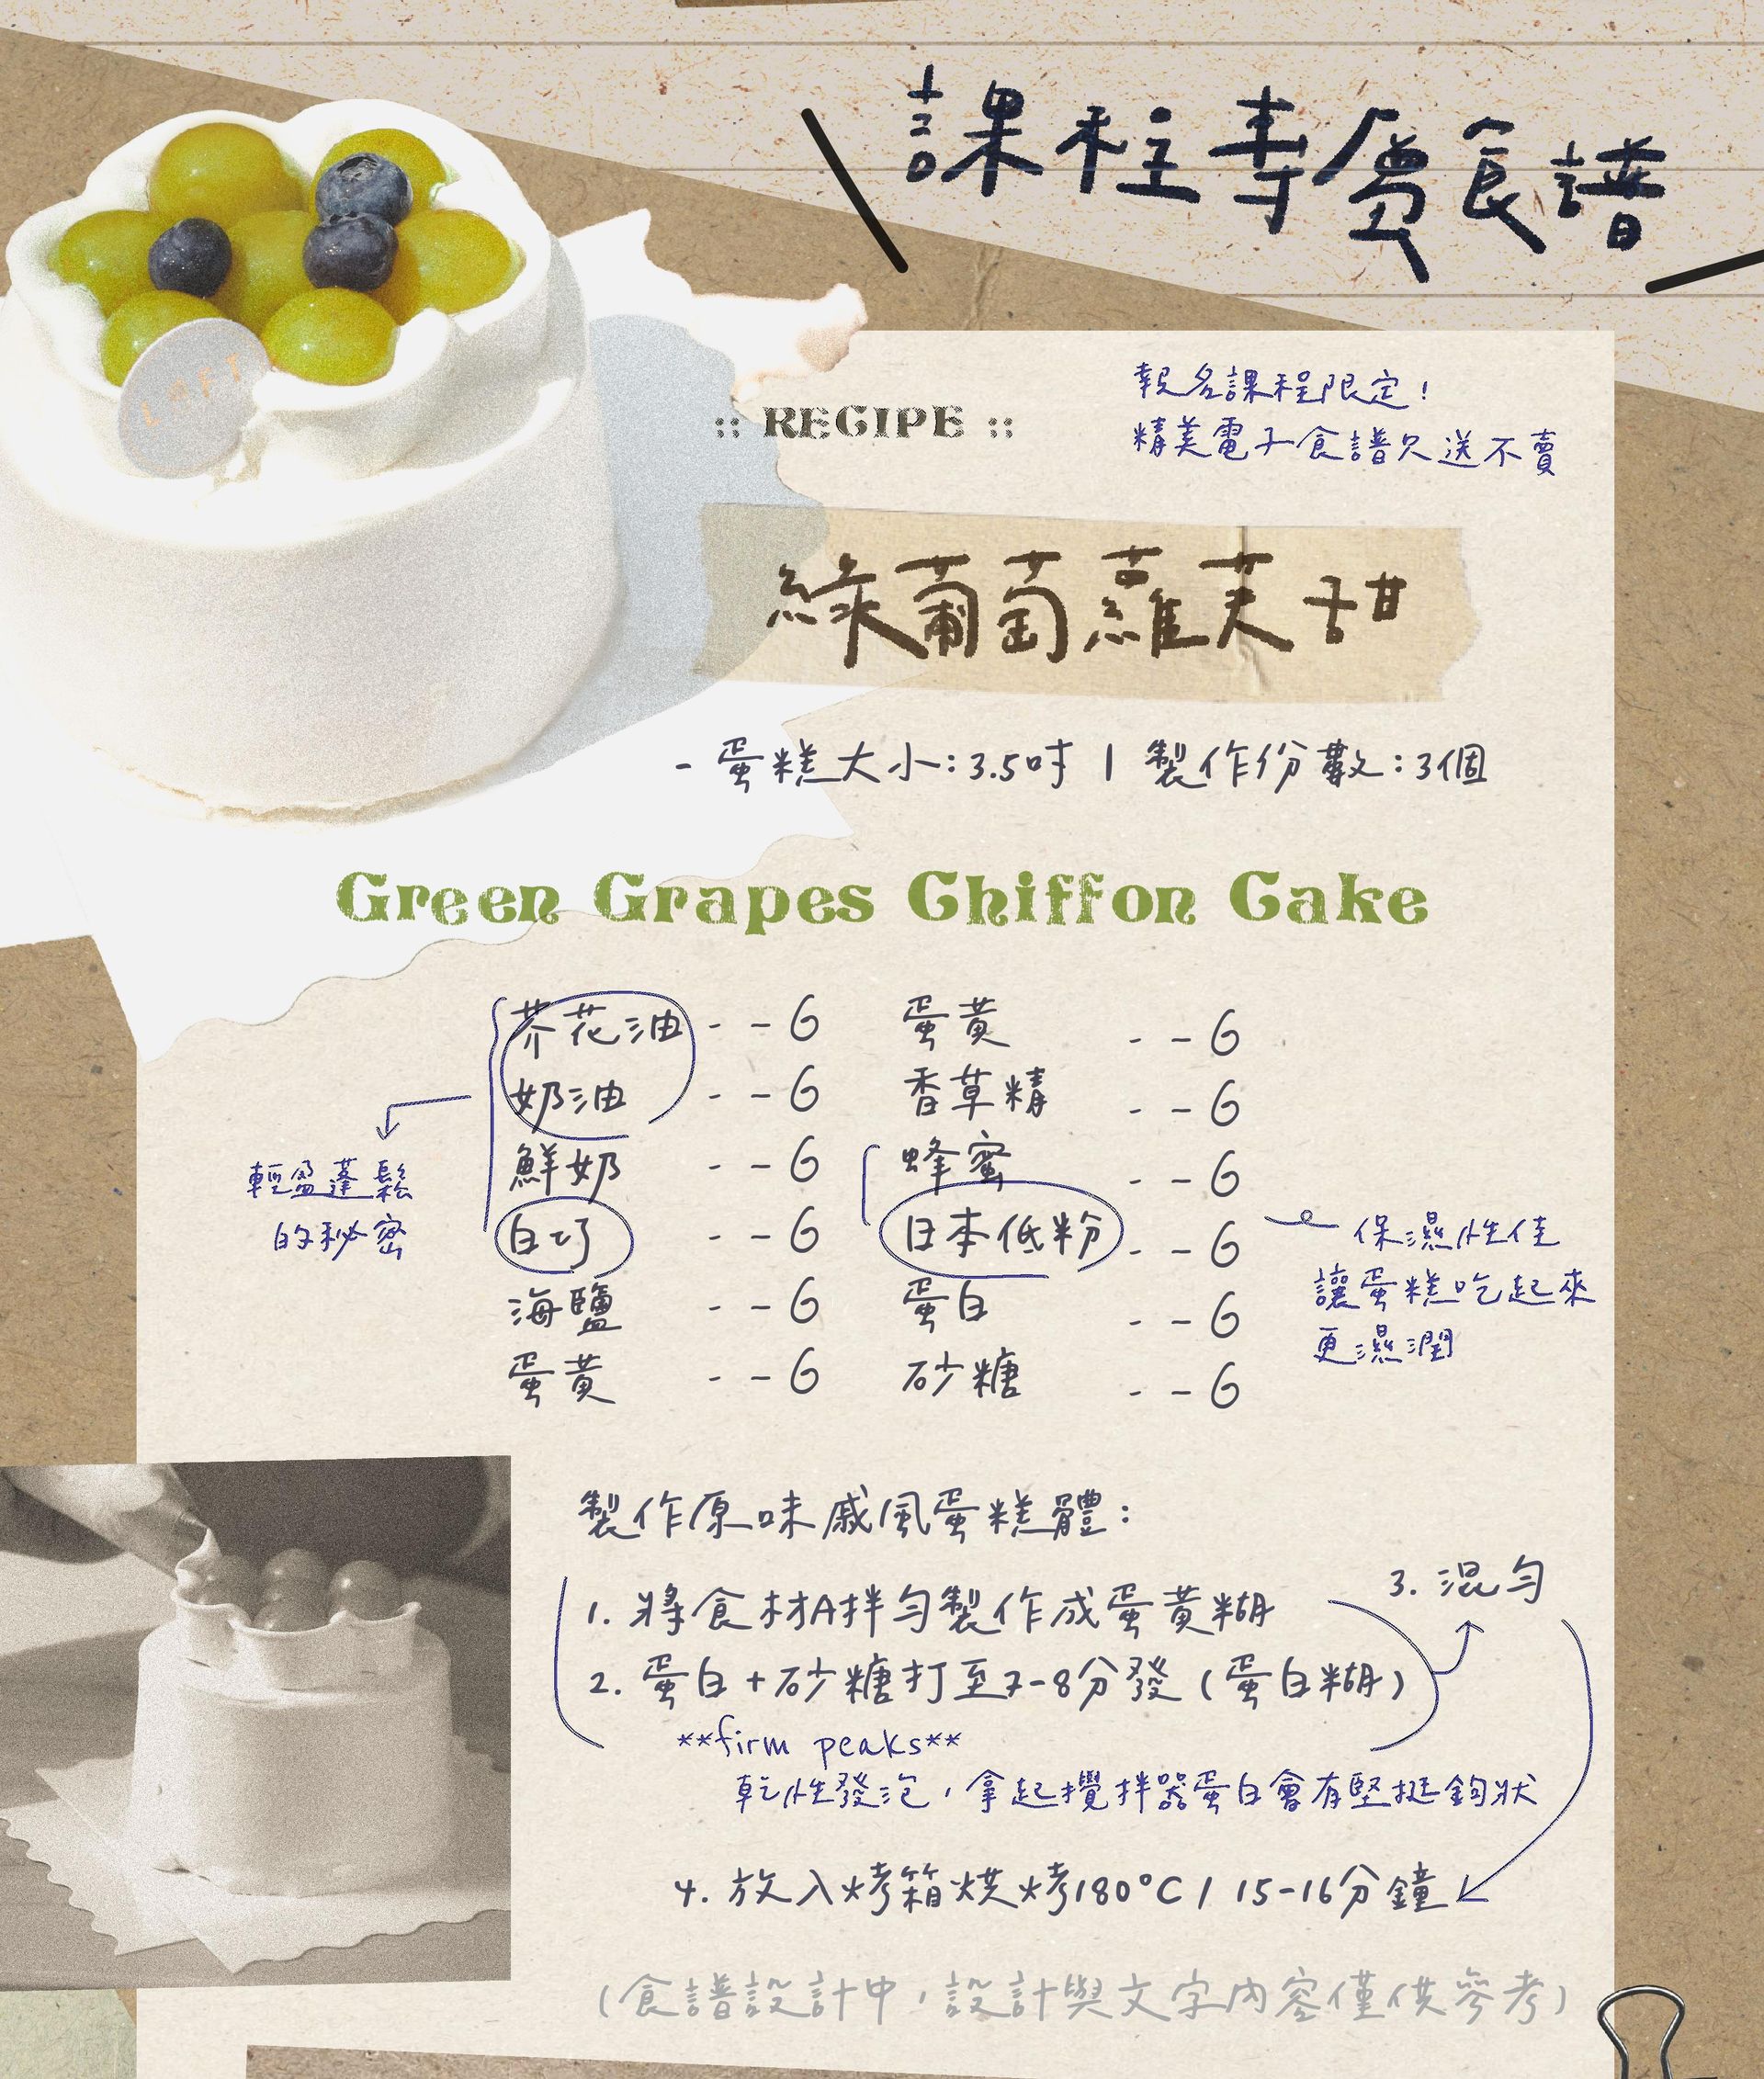 課程專屬食譜
:: RECIPE ::
報名課程限定!
精美電子食譜只送不賣
綠葡萄蘿芙甜
- 蛋糕大小:3.5吋 | 製作份數:3個
Green Grapes Chiffon Cake
芥花油 - - G
奶油 - - G
鮮奶 - - G
白巧 - - G
海鹽 - - G
蛋黃 - - G
蛋黃 - - G
香草精 - - G
蜂蜜 - - G
日本低粉 - - G
蛋白 - - G
砂糖 - - G
輕盈蓬鬆
的秘密
保濕性佳
讓蛋糕吃起來
更濕潤
製作原味戚風蛋糕體:
1. 將食材A拌勻製作成蛋黃糊
2. 蛋白+砂糖打至7-8分發(蛋白糊)
**firm peaks**
乾性發泡,拿起攪拌器蛋白會有堅挺鉤狀
3. 混勻
4. 放入烤箱烘烤180°C / 15-16分鐘
(食譜設計中,設計與文字內容僅供參考)